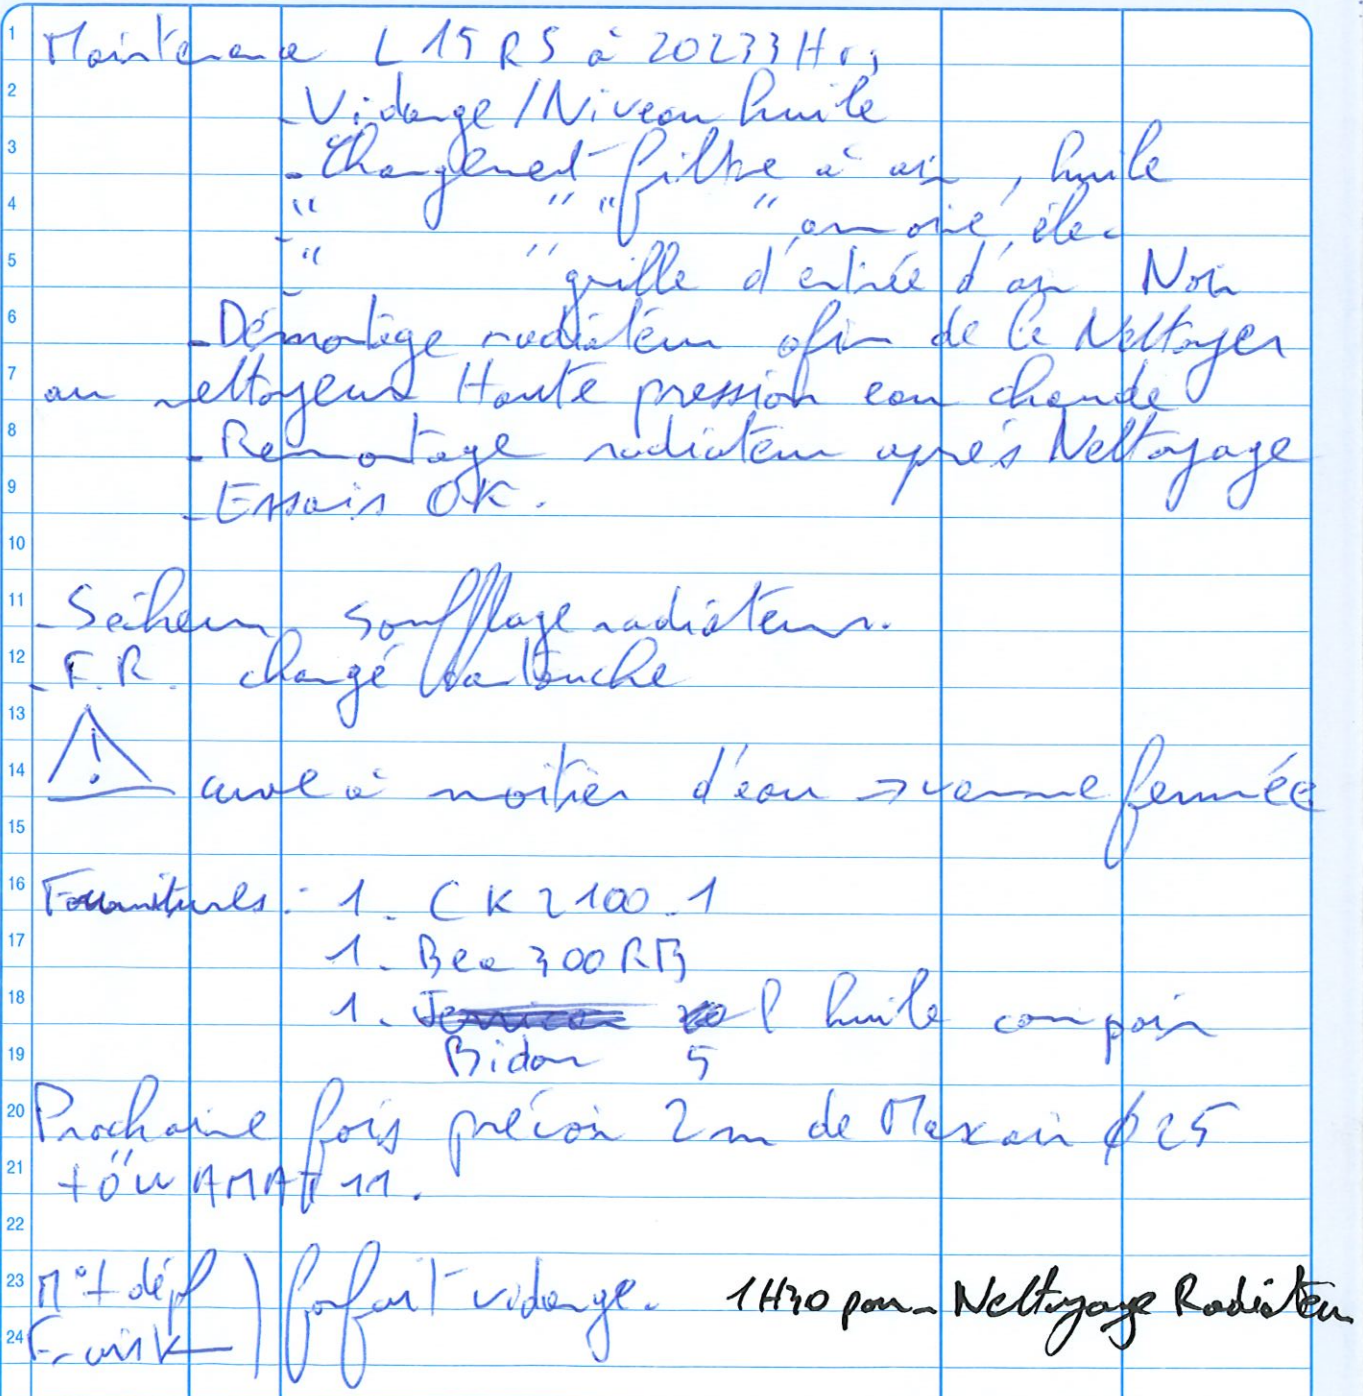 1 Maintenance L15RS à 20233 Hrs
2 - Vidange / Niveau huile
3 - Changement filtre à air, huile
4 - " " " " armoire élec
5 - " " grille d'entrée d'air Noir
6 - Démontage radiateur afin de le Nettoyer
7 au nettoyeur Haute pression eau chaude
8 - Remontage radiateur après Nettoyage
9 - Essais OK.
10
11 - Sécheur soufflage radiateur.
12 - F.R. changé cartouche
13 !
14 cuve à moitier d'eau → vanne fermée
15
16 Fournitures : 1. CK2100.1
17 1. Bea 300RB
18 1. l huile compair
19 Bidon 5
20 Prochaine fois prévoir 2m de Maxair ø 25
21 +
22
23 M° + dépl ) forfait vidange. 1H30 pour Nettoyage Radiateur
24